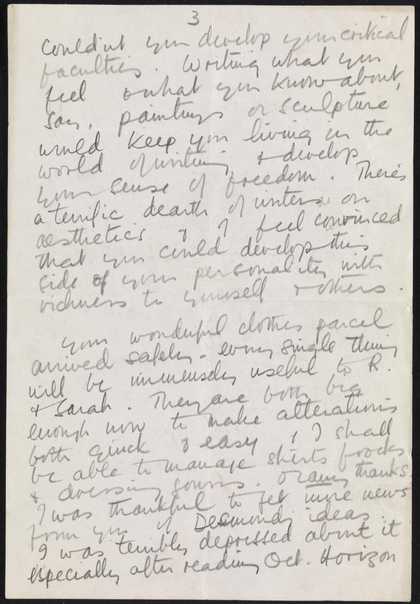 3
Couldn't you develop your critical
faculties. Writing what you
feel & what you know about,
say, paintings or sculpture
would keep you living in the
world of writing & develop
your sense of freedom. There's
a terrific dearth of writers on
aesthetics & I feel convinced
that you could develop this
side of your personality with
richness to yourself & others.
Your wonderful clothes parcel
arrived safely - every single thing
will be immensely useful to R.
& Sarah. They are both big
enough now to make alterations
both quick & easy, & I shall
be able to manage shirts frocks
& dressing gowns. thanks
I was thankful to get more news
from you of Desmonds ideas.
I was terribly depressed about it
especially after reading Oct. Horizon